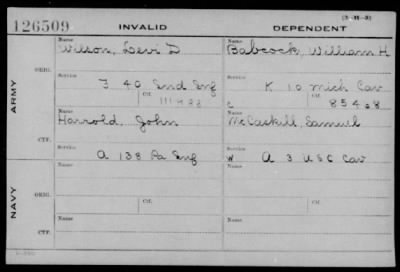 126509 INVALID DEPENDENT [3-111-3]
Name Name
Wilson, Levi D Babcock, William H
ORIG.
Service Service
F 40 Ind Inf K 10 Mich Cav
Ctf. Ctf.
C 85468
ARMY
Name Name
Harrold, John McCaskill Samuel
CTF.
Service Service
A 138 Pa Inf W A 3 U S C Cav
Name Ctf. Name Ctf.
NAVY
ORIG.
Name Name
CTF.